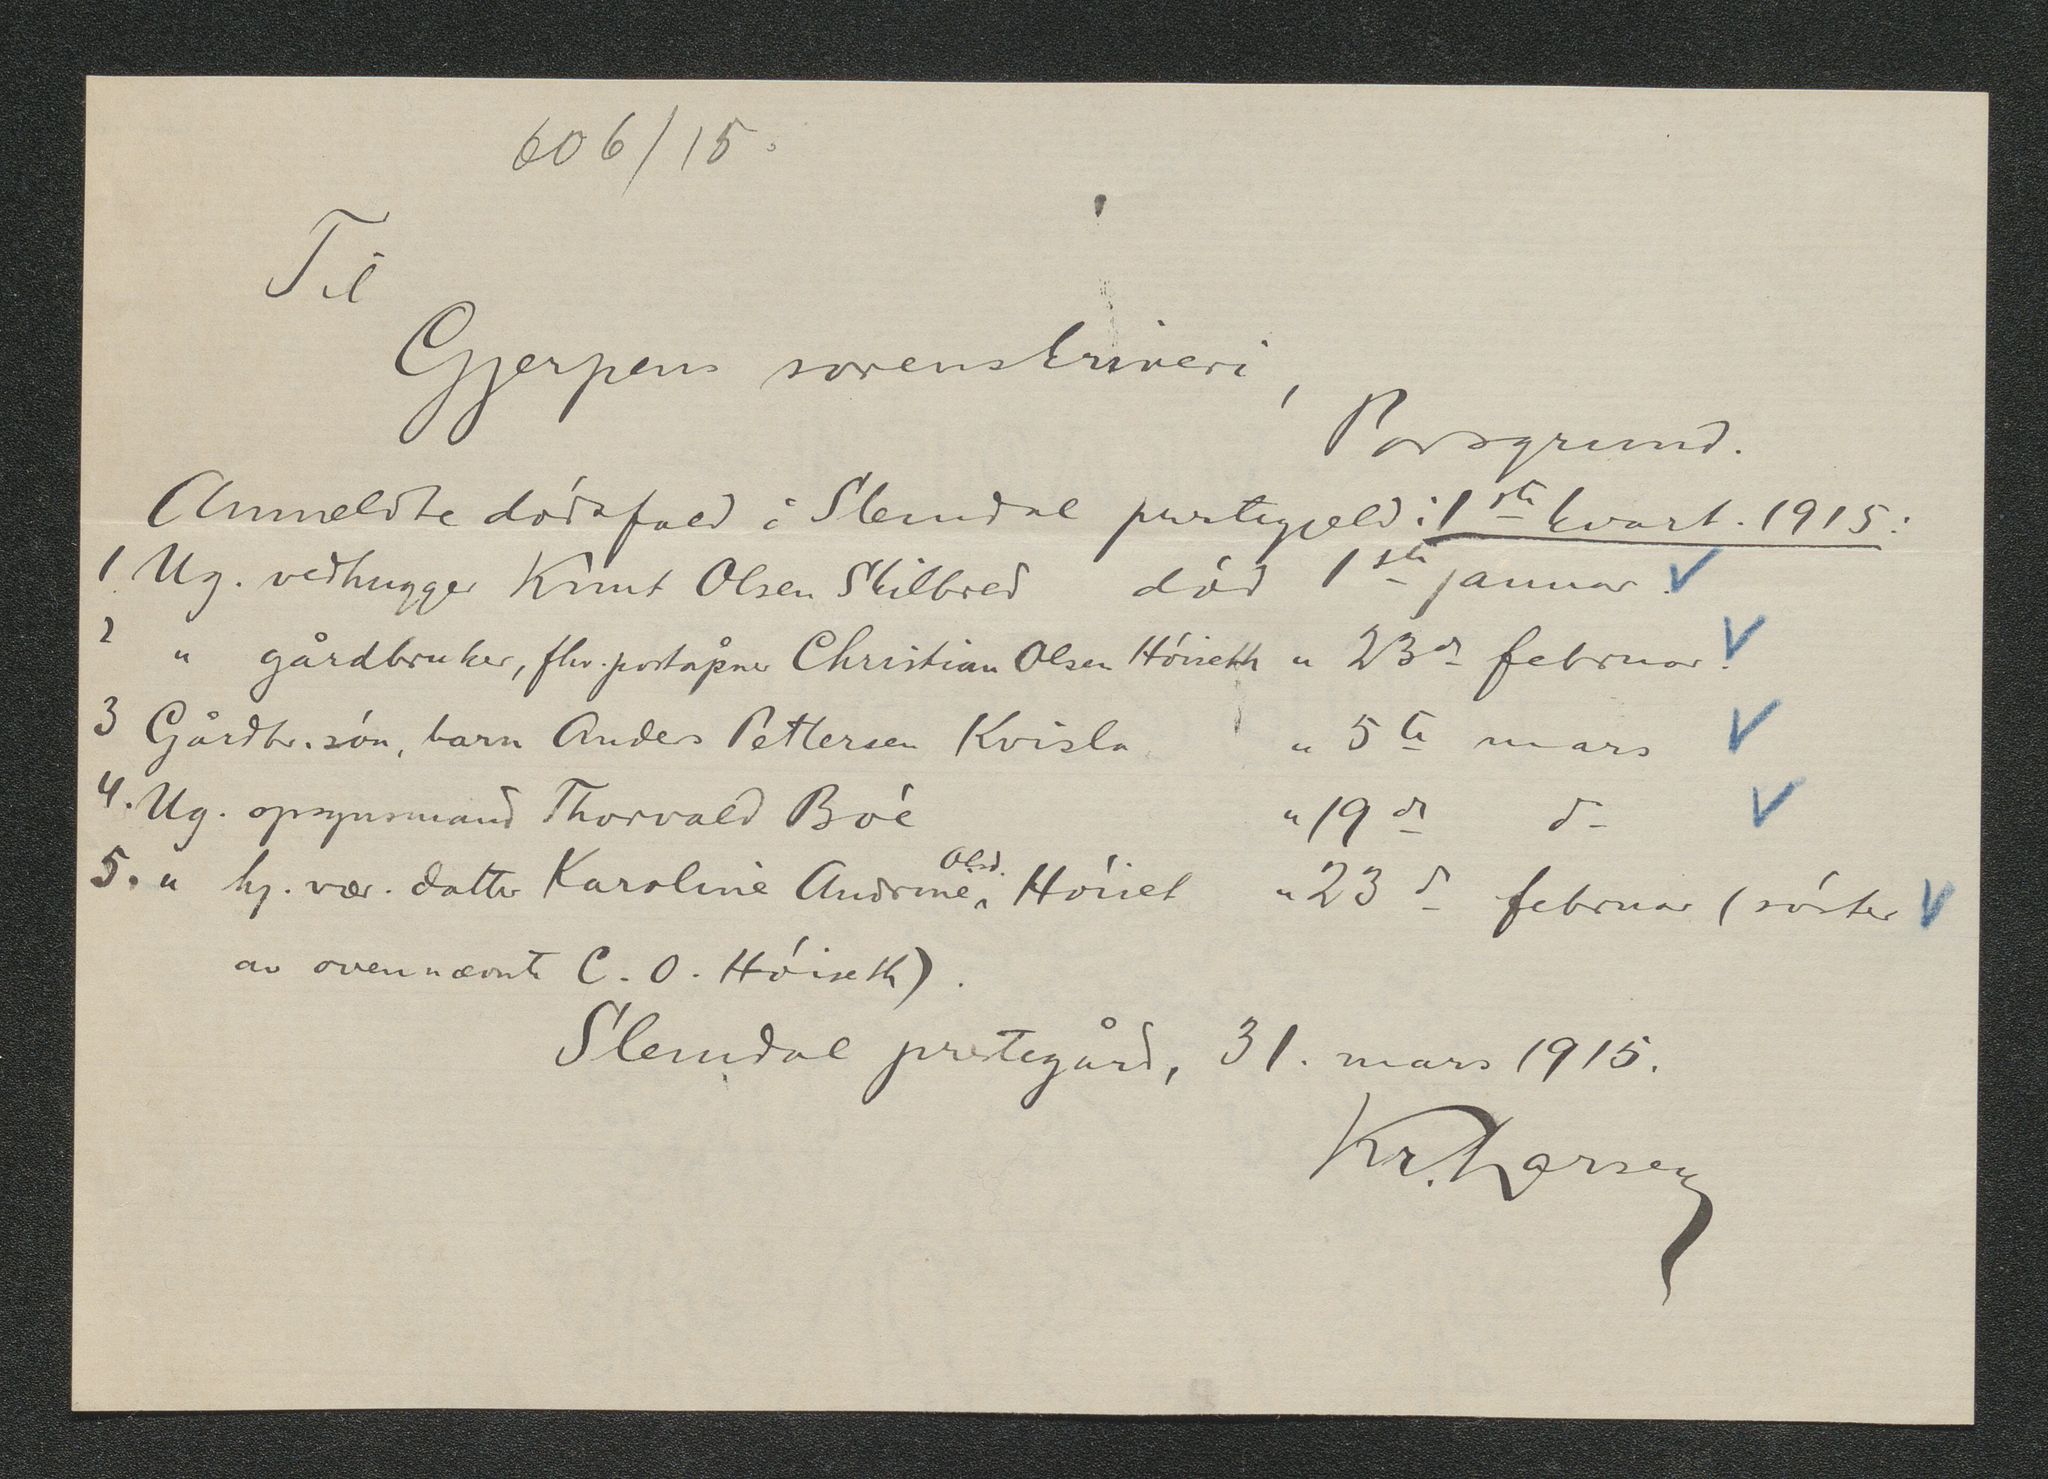 606/15.
Til
Gjerpens sorenskriveri,
Porsgrund.
Anmeldte dødsfald i Slemdal prestegjeld i 1ste kvart. 1915:
1 Ug. vedhugger Knut Olsen Skilbred død 1ste januar.
2 " gårdbruker, fhv. poståpner Christian Olsen Høiseth " 23de februar.
3 Gårdbr. søn, barn Anders Pettersen Kvisla " 5te mars
4. Ug. opsynsmand Thorvald Bøe " 19de do
5. " hj. vær. datter Karoline Andrine Olsd. Høiset " 23d februar (søster
av ovennævnte C. O. Høiseth).
Slemdal prestegård, 31. mars 1915.
Kr. Larsen